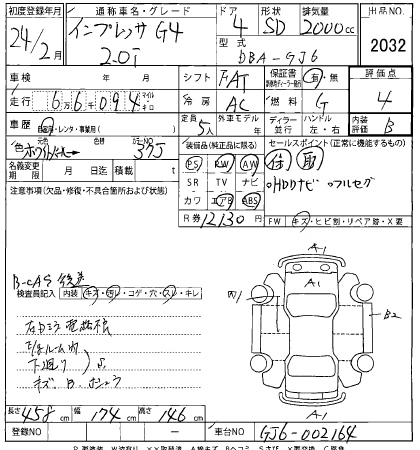 初度登録年月 通称車名・グレード ドア 形状 排気量 出品NO.
24/2月 インプレッサ G4 4 SD 2000cc
2.0i 型式 DBA-GJ6 2032
車検 年 月 シフト FAT 保証書 有・無 評価点
走行 6万6千094 マイル キロ 冷房 AC 燃料 G 4
車歴 自家用・レンタ・事業用( ) 定員 5人 外車モデル 年 ディーラー・並行 ハンドル 左・右 内装評価 B
色 ホワイトパール→ 色替 カラーNO 37J 装備品(純正品に限る) セールスポイント(正常に機能するもの)
名義変更期限 月 日迄 積載量 t PS PW AW
注意事項(欠品・修復・不具合箇所および状態) SR TV ナビ
カワ エアB ABS oHDDナビ oフルセグ
R券 12130円 FW キズ・ヒビ割・リペア跡・X要
B-CAS 後送
検査員記入 内装 キズ・汚レ・コゲ・穴・スレ・キレ
右カミラ電格
下廻り
キズ
A-1
A1
B2
A-1
長さ 458cm 幅 174cm 高さ 146cm
登録NO 車台NO GJ6-002164